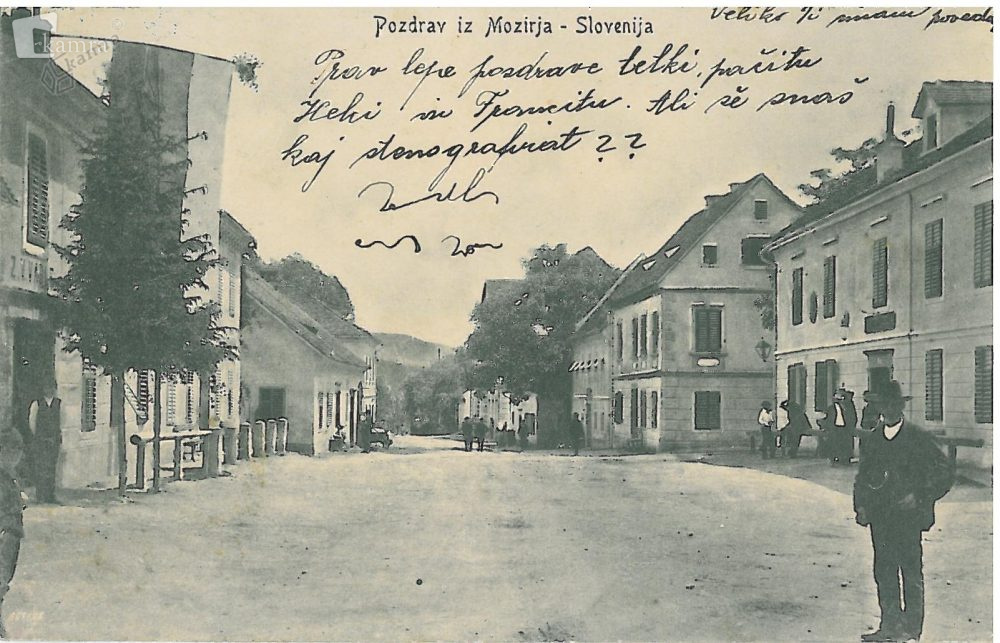 Pozdrav iz Mozirja - Slovenija
Veliko Ti imam poveda
Prav lepe pozdrave tetki, pačitu
Heki in Francitu. Ali še znaš
kaj stenografirat ??
kamra